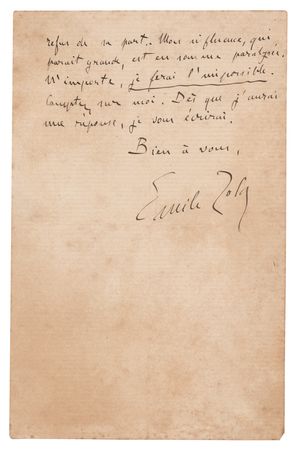 refus de sa part. Mon influence, qui
parait grande, est en somme paralysée.
N'importe, je ferai l'impossible.
Comptez sur moi. Dès que j'aurai
une réponse, je vous écrirai.
Bien à vous,
Emile Zola